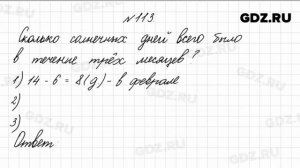 GDZ.RU
№ 113
Сколько солнечных дней всего было
в течение трёх месяцев?
1) 14 - 6 = 8 (д) - в феврале
2)
3)
Ответ